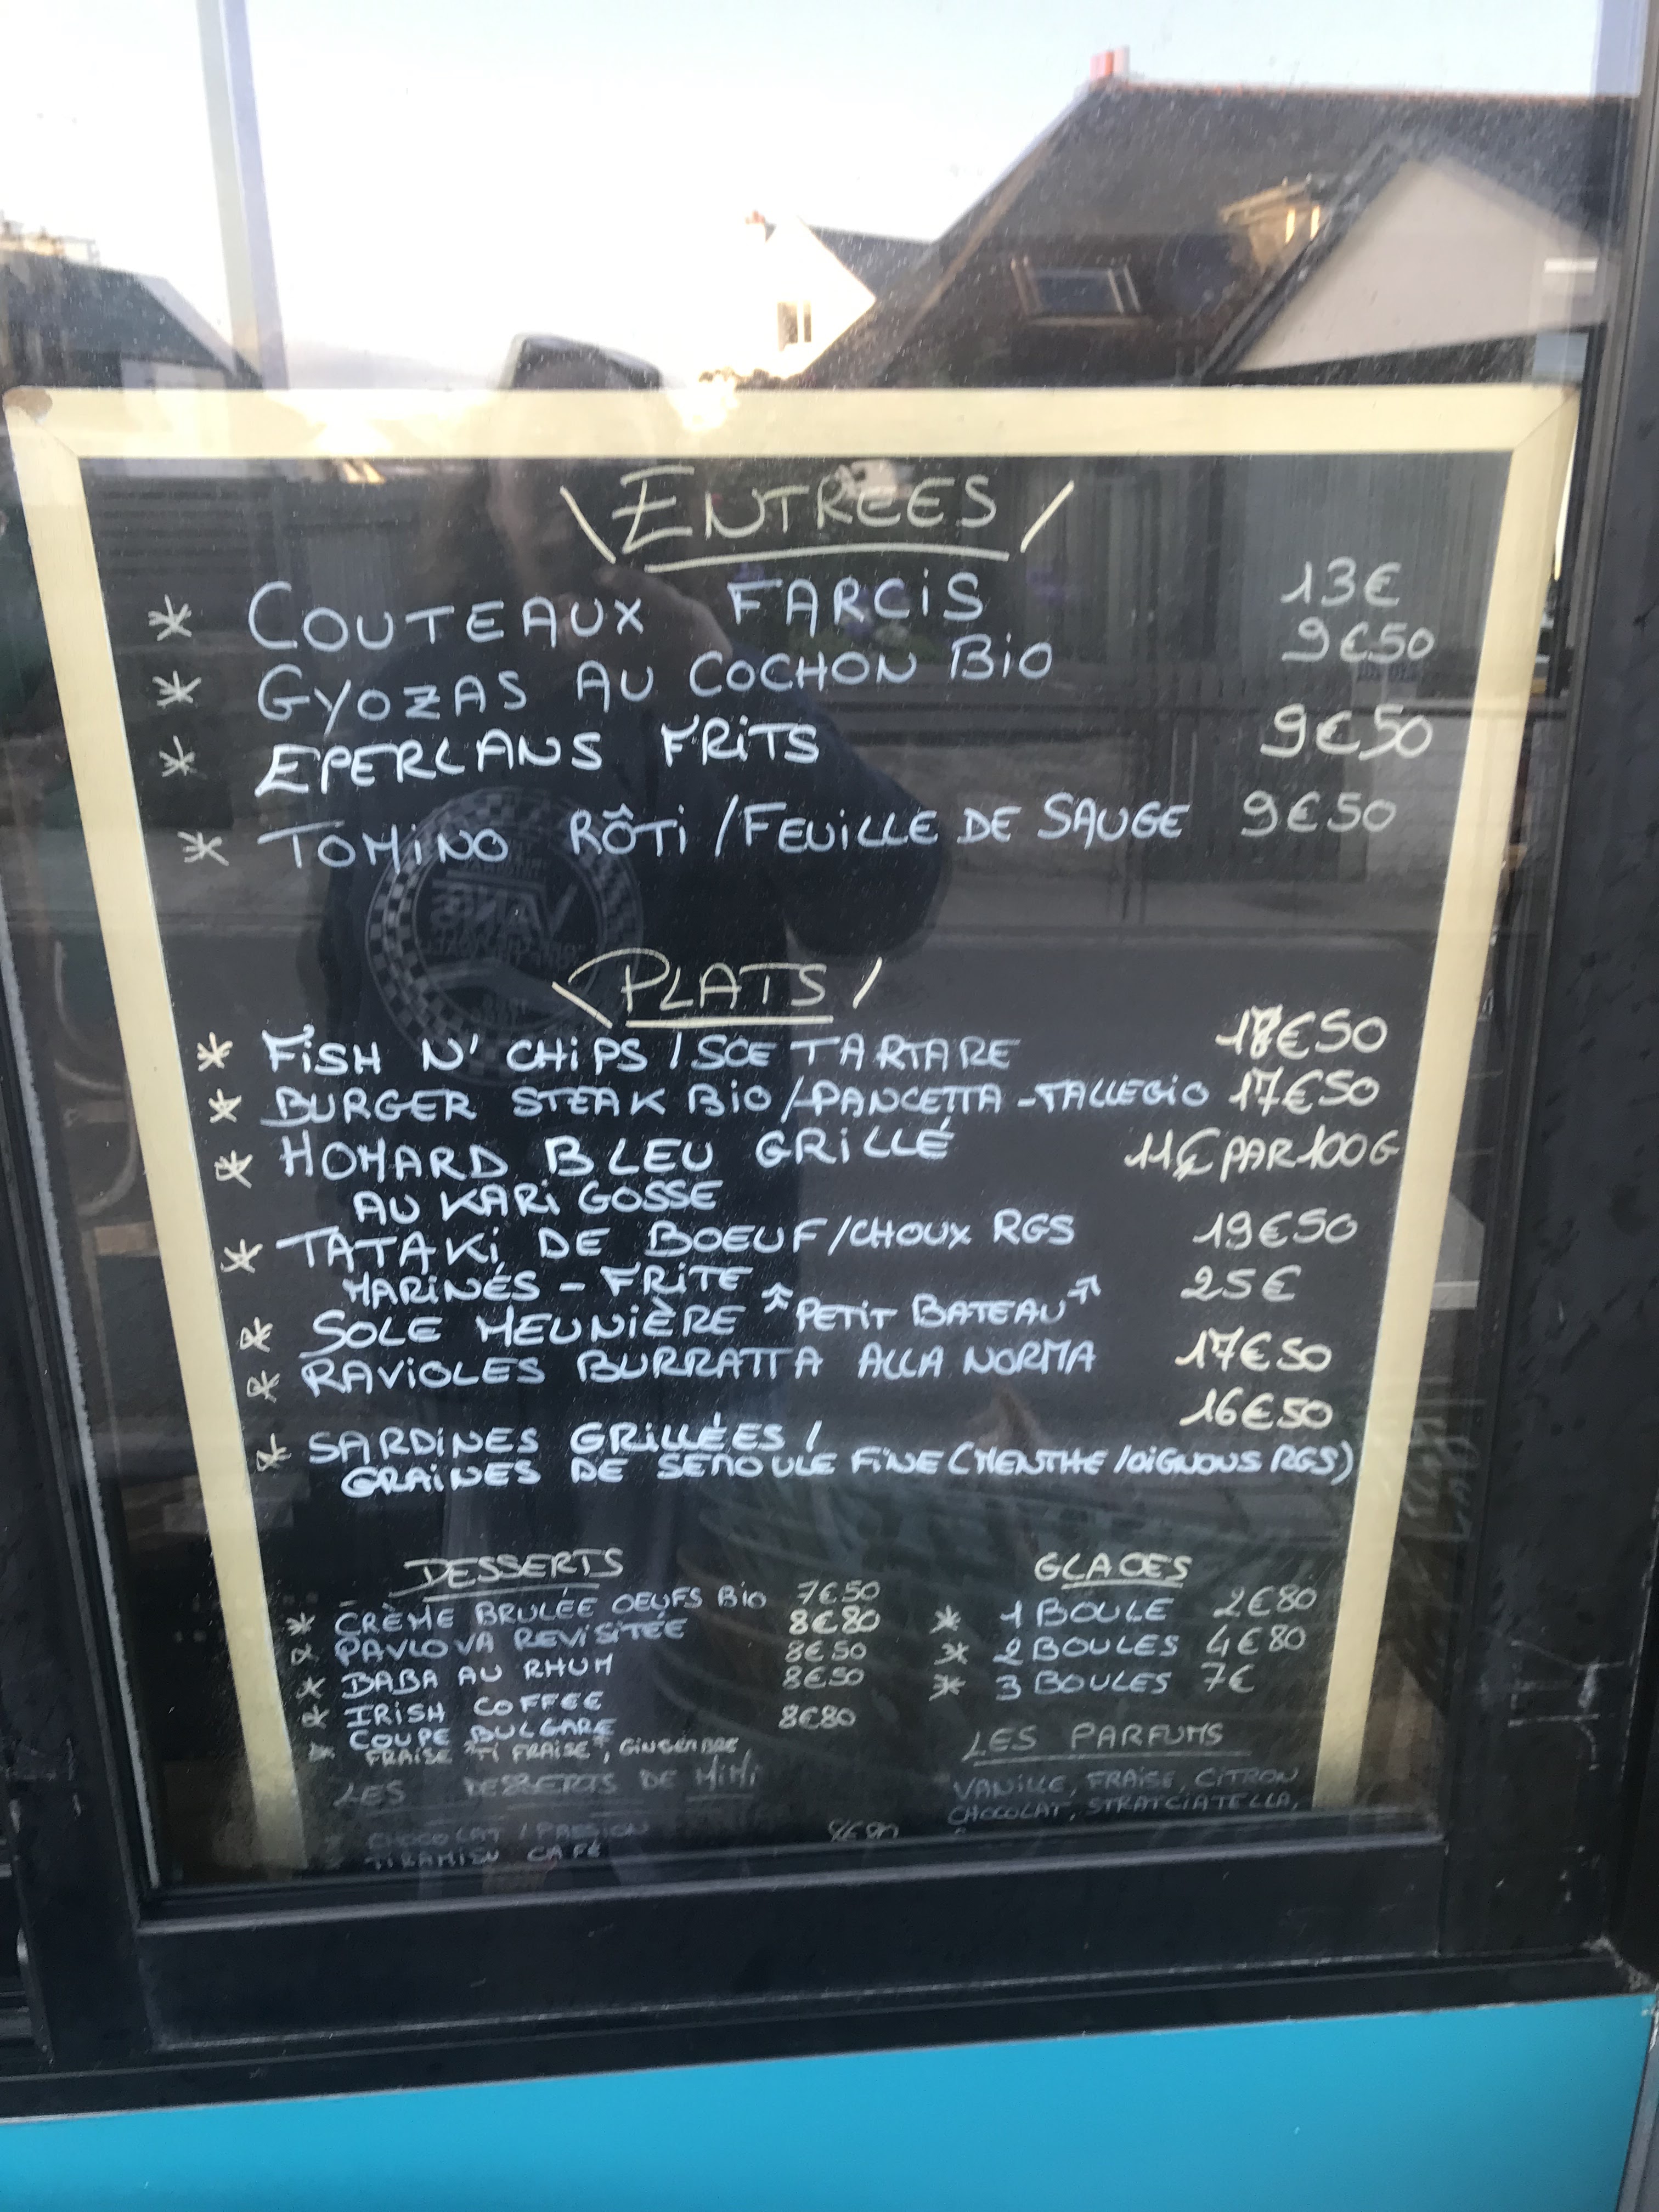 ENTREES
* COUTEAUX FARCIS 13€
* GYOZAS AU COCHON BIO 9€50
* EPERLANS FRITS 9€50
* TOMINO RÔTI / FEUILLE DE SAUGE 9€50
PLATS
* FISH N' CHIPS / SCE TARTARE 18€50
* BURGER STEAK BIO / PANCETTA - TALLEGIO 17€50
* HOMARD BLEU GRILLÉ 11€ PAR 100G
AU KARI GOSSE
* TATAKI DE BOEUF / CHOUX RGS 19€50
MARINÉS - FRITE
* SOLE MEUNIÈRE "PETIT BATEAU" 25€
* RAVIOLES BURRATTA ALLA NORMA 17€50
* SARDINES GRILLÉES / 16€50
GRAINES DE SEMOULE FINE (MENTHE / OIGNONS RGS)
DESSERTS
* CRÈME BRULÉE OEUFS BIO 7€50
* PAVLOVA REVISITÉE 8€80
* BABA AU RHUM 8€50
* IRISH COFFEE 8€50
* COUPE BULGARE 8€80
FRAISE "TI FRAISE", GINGEMBRE
LES DESSERTS DE MIMI
CHOCOLAT / PASSION 8€80
TIRAMISU CAFÉ
GLACES
* 1 BOULE 2€80
* 2 BOULES 4€80
* 3 BOULES 7€
LES PARFUMS
VANILLE, FRAISE, CITRON
CHOCOLAT, STRATCIATELLA,
VANS